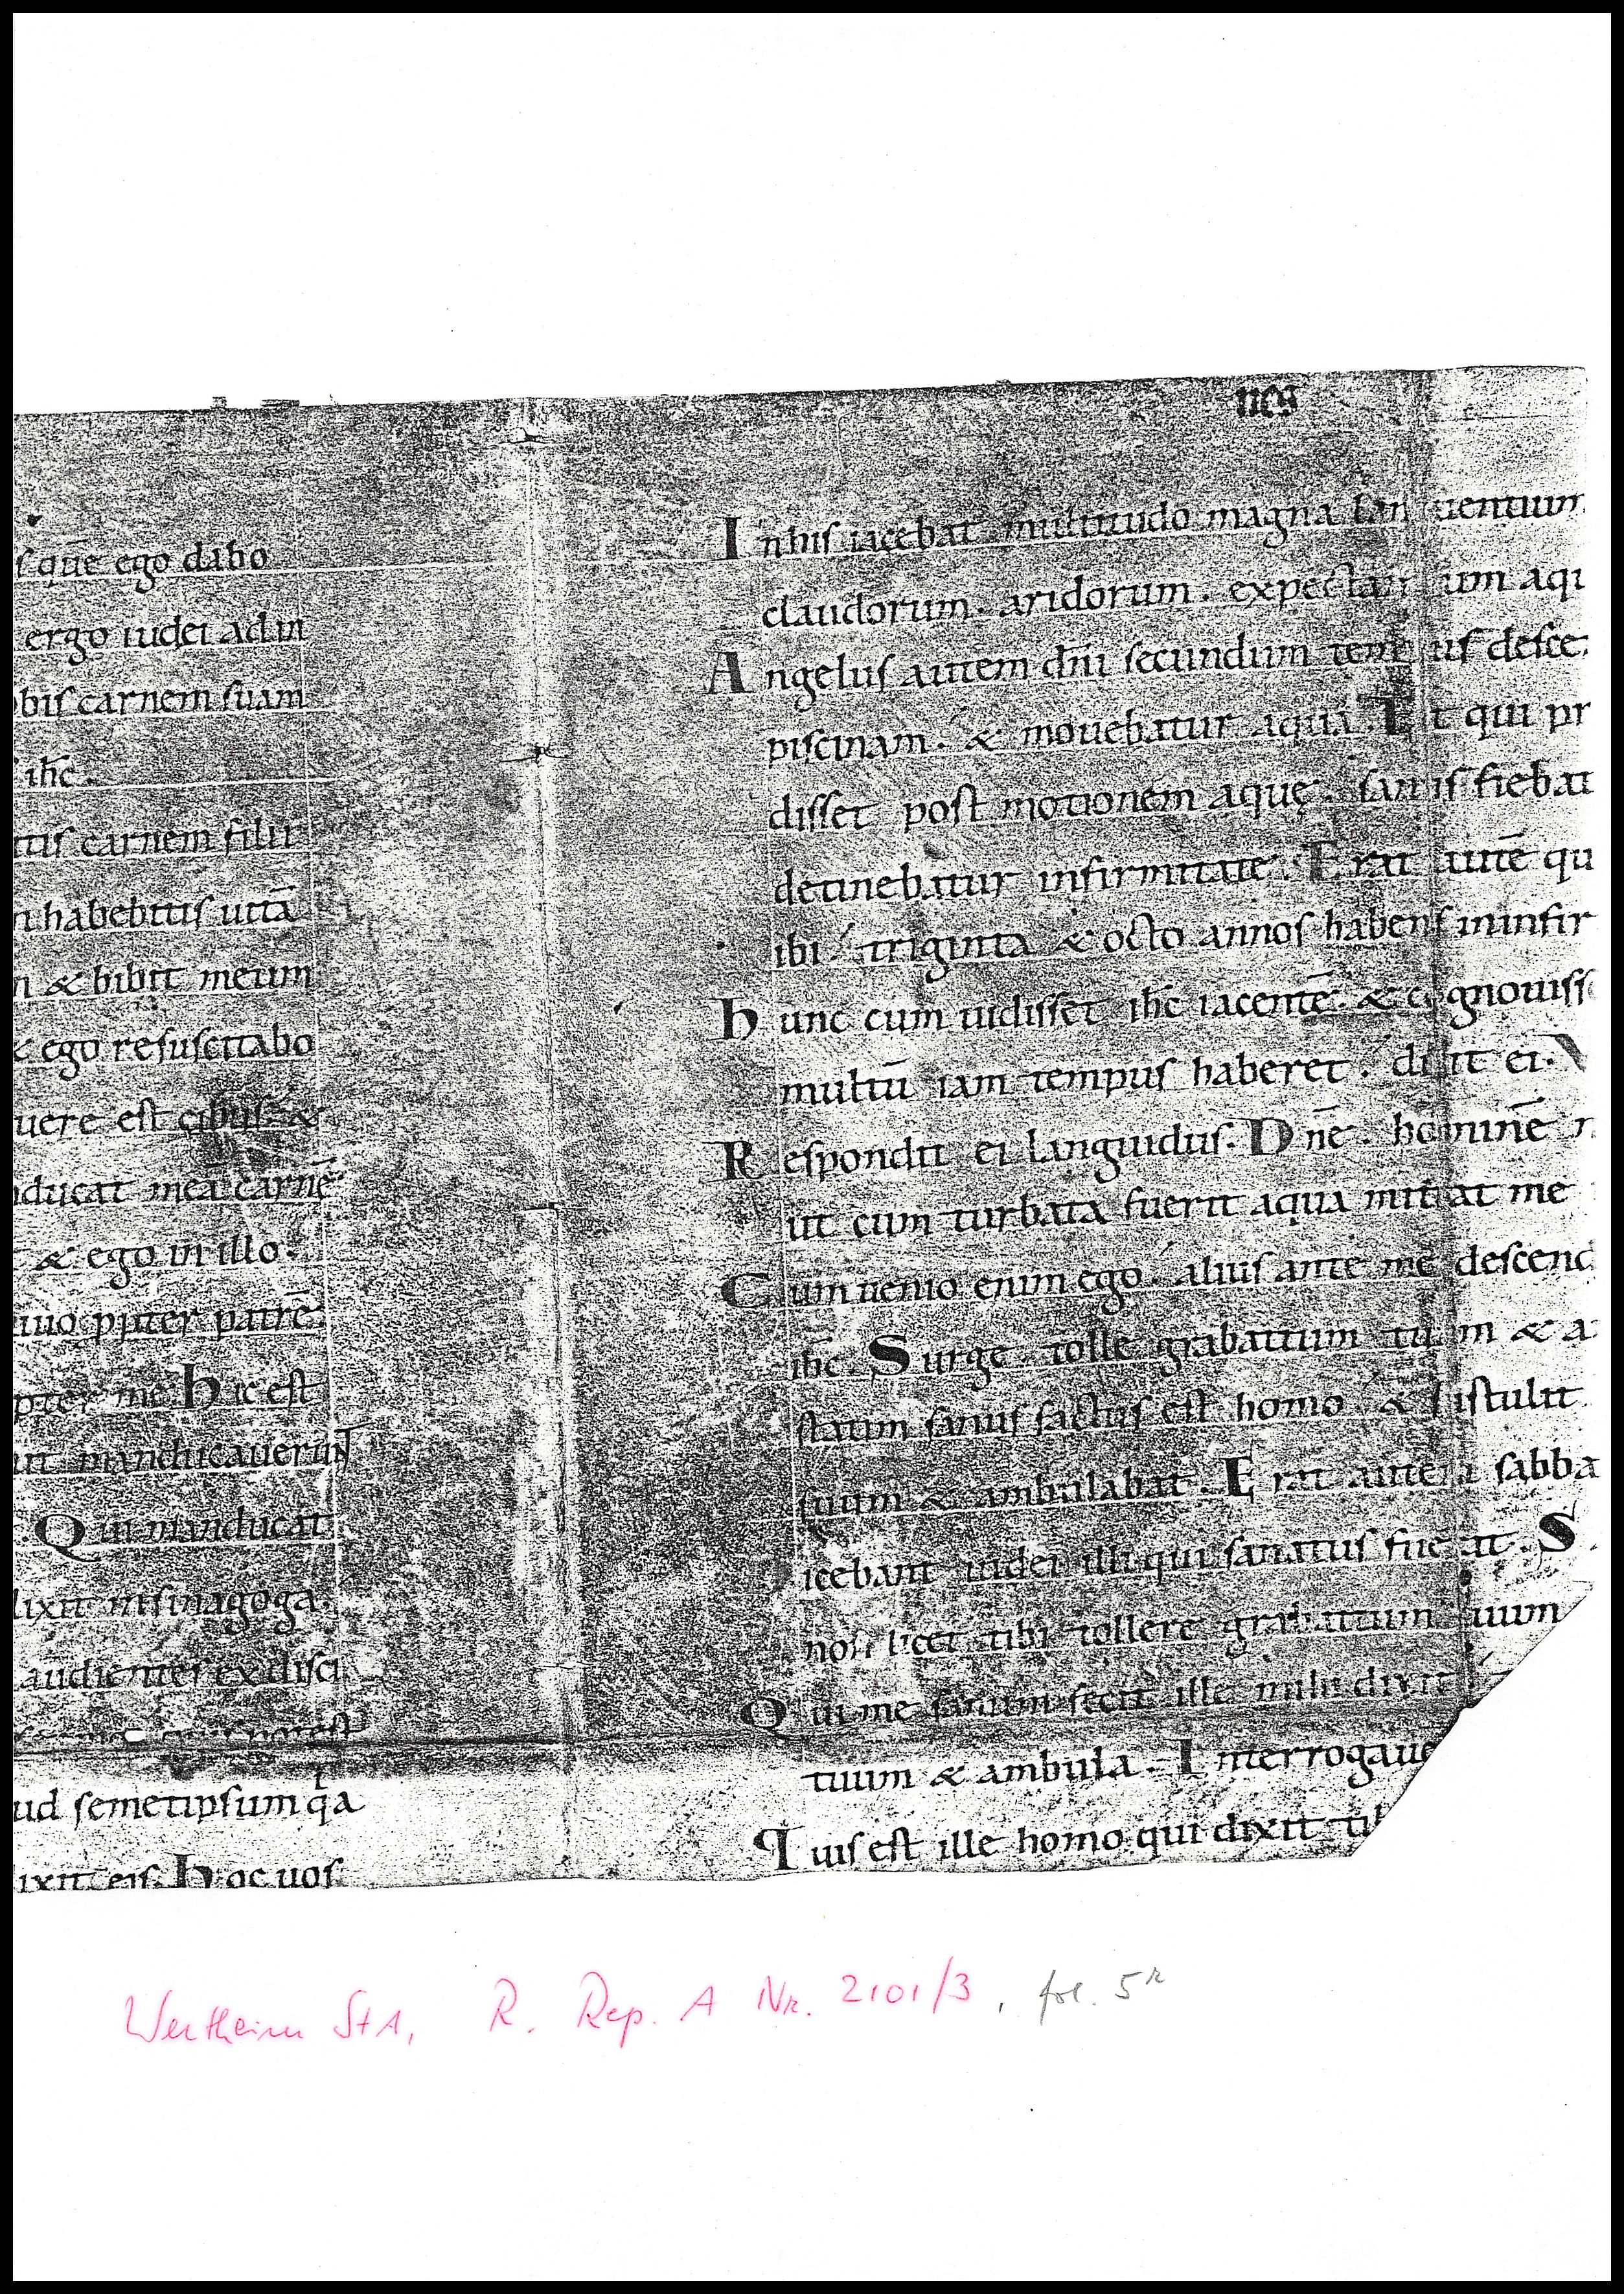 nes
s quē ego dabo
ergo iudei ad in
obis carnem suam
ihc̄.
tis carnem filii
n habebitis uitā
n & bibit meum
& ego resuscitabo
uere est cibus. &
nducat meā carnē.
& ego in illo.
uiuo ꝓpter patrē.
pter me. Hic est
ut manducauerunt
Qui manducat
dixit in sinagoga.
audientes ex disci
potest
ud semetipsum q̇a
ixit eis. Hoc uos
In his iacebat multitudo magna languentium
claudorum. aridorum. expectantium aqu
Angelus autem dn̄i secundum tempus desce
piscinam. & mouebatur aqua. Et qui pr
disset post motionem aquę. sanus fiebat
detinebatur infirmitate. Erat autē qu
ibi. triginta & octo annos habens in infir
Hunc cum uidisset ihc̄ iacentē. & cognouiss
multū iam tempus haberet. dixit ei. V
Respondit ei languidus. Dn̄e. hominē n
ut cum turbata fuerit aqua mittat me
Cum uenio enim ego. alius ante me descend
ihc̄. Surge. tolle grabattum tuum & a
statim sanus factus est homo. & sustulit
suum & ambulabat. Erat autem sabba
icebant iudei illi qui sanatus fuerat. S
non licet tibi tollere grabattum tuum
Qui me sanum fecit ille mihi dixit
tuum & ambula. Interrogaue
Quis est ille homo qui dixit tib
Wertheim StA, R. Rep. A Nr. 2101/3, fol. 5r